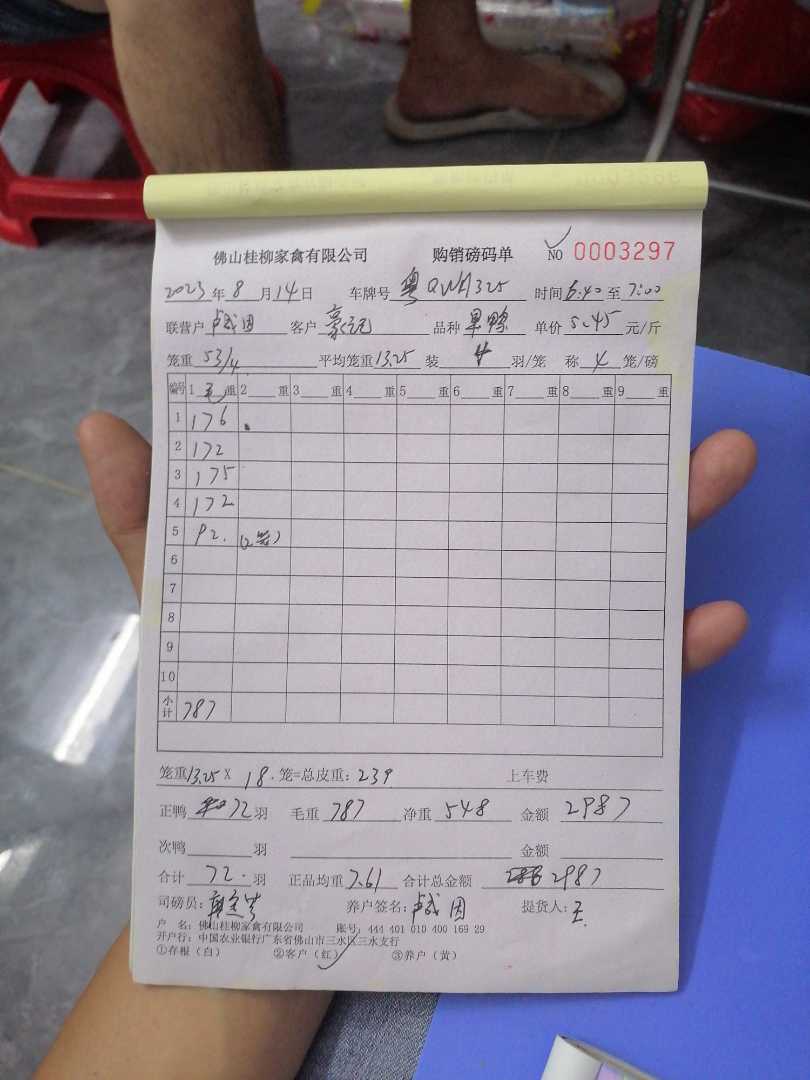 佛山桂柳家禽有限公司 购销磅码单 NO 0003297
2023年8月14日 车牌号 粤QWA325 时间 6:40至7:00
联营户 客户 品种 单价 5.45 元/斤
笼重 53/4 平均笼重 13.25 装 4 羽/笼 称 4 笼/磅
编号 1 毛 重 2 重 3 重 4 重 5 重 6 重 7 重 8 重 9 重
1 176
2 172
3 175
4 172
5 92. (2笼)
6
7
8
9
10
小计 787
笼重13.25X 18.笼=总皮重:239 上车费
正鸭 72羽 毛重 787 净重 548 金额 2987
次鸭 羽 金额
合计 72.羽 正品均重 7.61 合计总金额 2987
司磅员: 养户签名: 提货人:王
户 名:佛山桂柳家禽有限公司 账号:444 401 010 400 169 29
开户行:中国农业银行广东省佛山市三水区三水支行
①存根(白) ②客户(红) ③养户(黄)